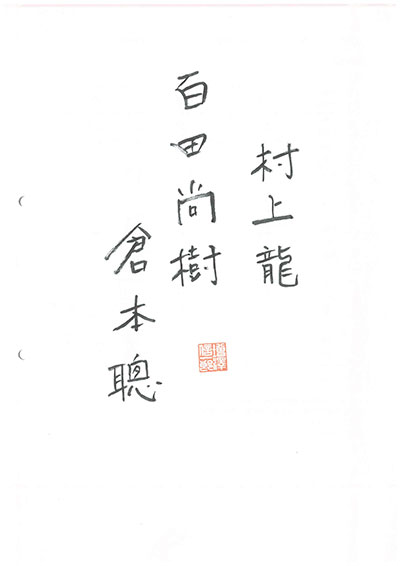 村上龍
百田尚樹
倉本聰